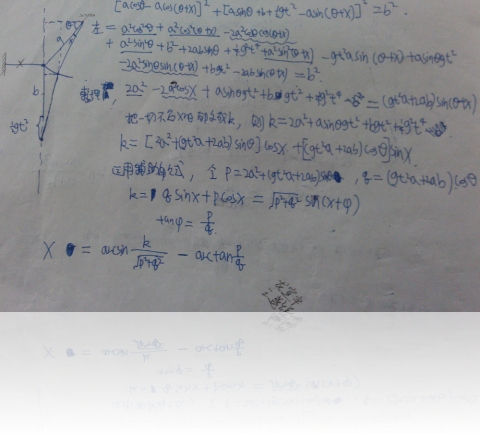 [acosθ - acos(θ+x)]² + [asinθ + b + ½gt² - asin(θ+x)]² = b².
左 = a²cos²θ + a²cos²(θ+x) - 2a²cosθcos(θ+x)
+ a²sin²θ + b² + 2absinθ + ¼g²t⁴ + a²sin²(θ+x) - gt²asin(θ+x) + asinθgt²
- 2a²sinθsin(θ+x) + bgt² - 2absin(θ+x) = b².
整理, 2a² - 2a²cosx + asinθgt² + bgt² + ¼g²t⁴ = (gt²a+2ab)sin(θ+x)
把一切不含x的部分叫k, 则 k = 2a² + asinθgt² + bgt² + ¼g²t⁴
k = [2a² + (gt²a+2ab)sinθ]cosx + [(gt²a+2ab)cosθ]sinx.
运用辅助角公式, 令 p = 2a² + (gt²a+2ab)sinθ, q = (gt²a+2ab)cosθ
k = qsinx + pcosx = √p²+q² sin(x+φ)
tanφ = p/q
x = arcsin k/√p²+q² - arctan p/q
x
θ
a
a
b
½gt²